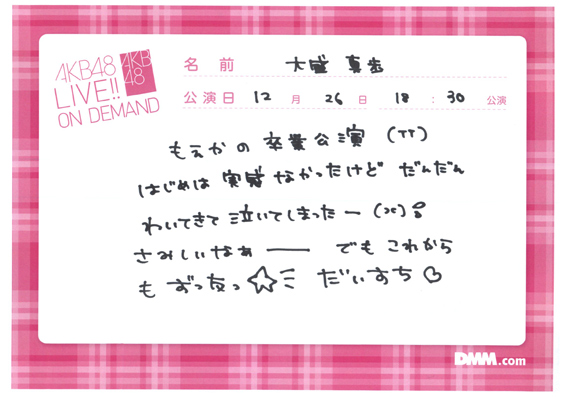 AKB48
LIVE!!
ON DEMAND
AKB
48
名前 大盛 真歩
公演日 12月 26日 18:30 公演
もえかの 卒業公演 (TT)
はじめは 実感 なかったけど だんだん
わいてきて 泣いてしまったー (><)
さみしいなぁ ── でも これから
も ずっ友っ☆ だいすち♡
DMM.com